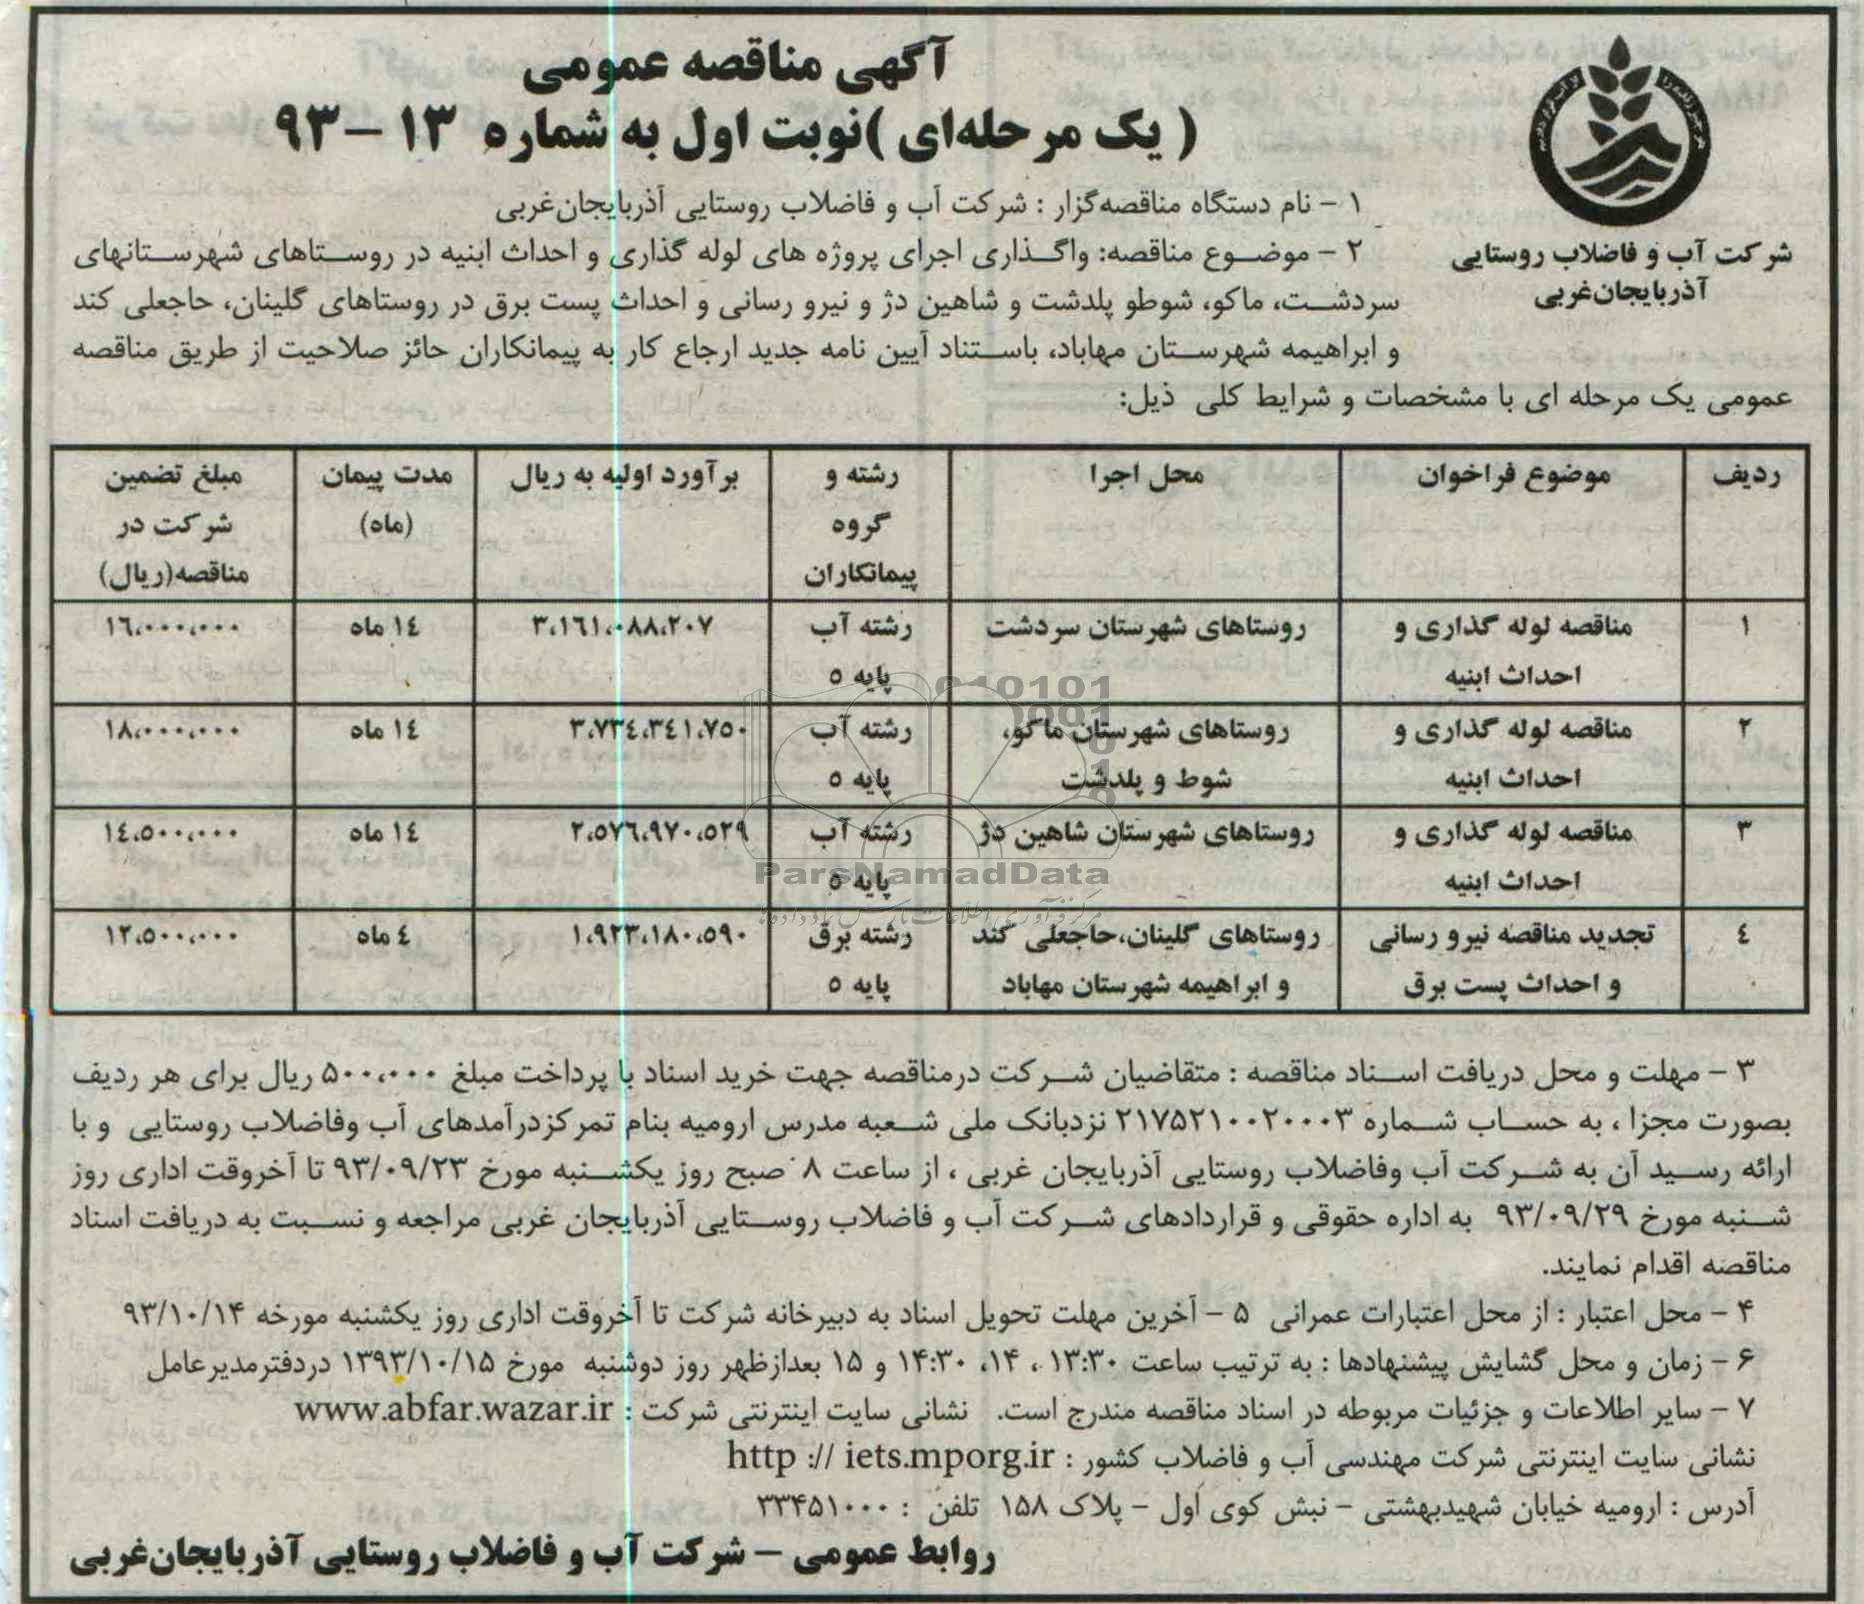 آگهی مناقصه عمومی
( یک مرحله‌ای )نوبت اول به شماره ۱۳ – ۹۳
شرکت آب و فاضلاب روستایی
آذربایجان‌غربی
۱ – نام دستگاه مناقصه‌گزار : شرکت آب و فاضلاب روستایی آذربایجان‌غربی
۲ – موضوع مناقصه: واگذاری اجرای پروژه های لوله گذاری و احداث ابنیه در روستاهای شهرستانهای
سردشت، ماکو، شوطو پلدشت و شاهین دژ و نیرو رسانی و احداث پست برق در روستاهای گلینان، حاجعلی کند
و ابراهیمه شهرستان مهاباد، باستناد آیین نامه جدید ارجاع کار به پیمانکاران حائز صلاحیت از طریق مناقصه
عمومی یک مرحله ای با مشخصات و شرایط کلی ذیل:
ردیف موضوع فراخوان محل اجرا رشته و برآورد اولیه به ریال مدت پیمان مبلغ تضمین
گروه (ماه) شرکت در
پیمانکاران مناقصه(ریال)
۱ مناقصه لوله گذاری و روستاهای شهرستان سردشت رشته آب ۳،۱٦۱،۰۸۸،۲۰۷ ۱٤ ماه ۱٦،۰۰۰،۰۰۰
احداث ابنیه پایه ٥
۲ مناقصه لوله گذاری و روستاهای شهرستان ماکو، رشته آب ۳،۷۳٤،۳٤۱،۷٥۰ ۱٤ ماه ۱۸،۰۰۰،۰۰۰
احداث ابنیه شوط و پلدشت پایه ٥
۳ مناقصه لوله گذاری و روستاهای شهرستان شاهین دژ رشته آب ۲،٥۷٦،۹۷۰،٥۲۹ ۱٤ ماه ۱٤،٥۰۰،۰۰۰
احداث ابنیه پایه ٥
٤ تجدید مناقصه نیرو رسانی روستاهای گلینان،حاجعلی کند رشته برق ۱،۹۲۳،۱۸۰،٥۹۰ ٤ ماه ۱۲،٥۰۰،۰۰۰
و احداث پست برق و ابراهیمه شهرستان مهاباد پایه ٥
ParsNamadData
۳ – مهلت و محل دریافت اسناد مناقصه : متقاضیان شرکت درمناقصه جهت خرید اسناد با پرداخت مبلغ ۵۰۰،۰۰۰ ریال برای هر ردیف
بصورت مجزا ، به حساب شماره ۲۱۷۵۲۱۰۰۲۰۰۰۳ نزدبانک ملی شعبه مدرس ارومیه بنام تمرکزدرآمدهای آب وفاضلاب روستایی و با
ارائه رسید آن به شرکت آب وفاضلاب روستایی آذربایجان غربی ، از ساعت ۸ صبح روز یکشنبه مورخ ۹۳/۰۹/۲۳ تا آخروقت اداری روز
شنبه مورخ ۹۳/۰۹/۲۹ به اداره حقوقی و قراردادهای شرکت آب و فاضلاب روستایی آذربایجان غربی مراجعه و نسبت به دریافت اسناد
مناقصه اقدام نمایند.
۴ – محل اعتبار : از محل اعتبارات عمرانی ۵ – آخرین مهلت تحویل اسناد به دبیرخانه شرکت تا آخروقت اداری روز یکشنبه مورخه ۹۳/۱۰/۱۴
۶ – زمان و محل گشایش پیشنهادها : به ترتیب ساعت ۱۳:۳۰ ، ۱۴، ۱۴:۳۰ و ۱۵ بعدازظهر روز دوشنبه مورخ ۱۳۹۳/۱۰/۱۵ دردفترمدیرعامل
۷ – سایر اطلاعات و جزئیات مربوطه در اسناد مناقصه مندرج است. نشانی سایت اینترنتی شرکت : www.abfar.wazar.ir
نشانی سایت اینترنتی شرکت مهندسی آب و فاضلاب کشور : http :// iets.mporg.ir
آدرس : ارومیه خیابان شهیدبهشتی – نبش کوی اول – پلاک ۱۵۸ تلفن : ۳۳۴۵۱۰۰۰
روابط عمومی – شرکت آب و فاضلاب روستایی آذربایجان‌غربی